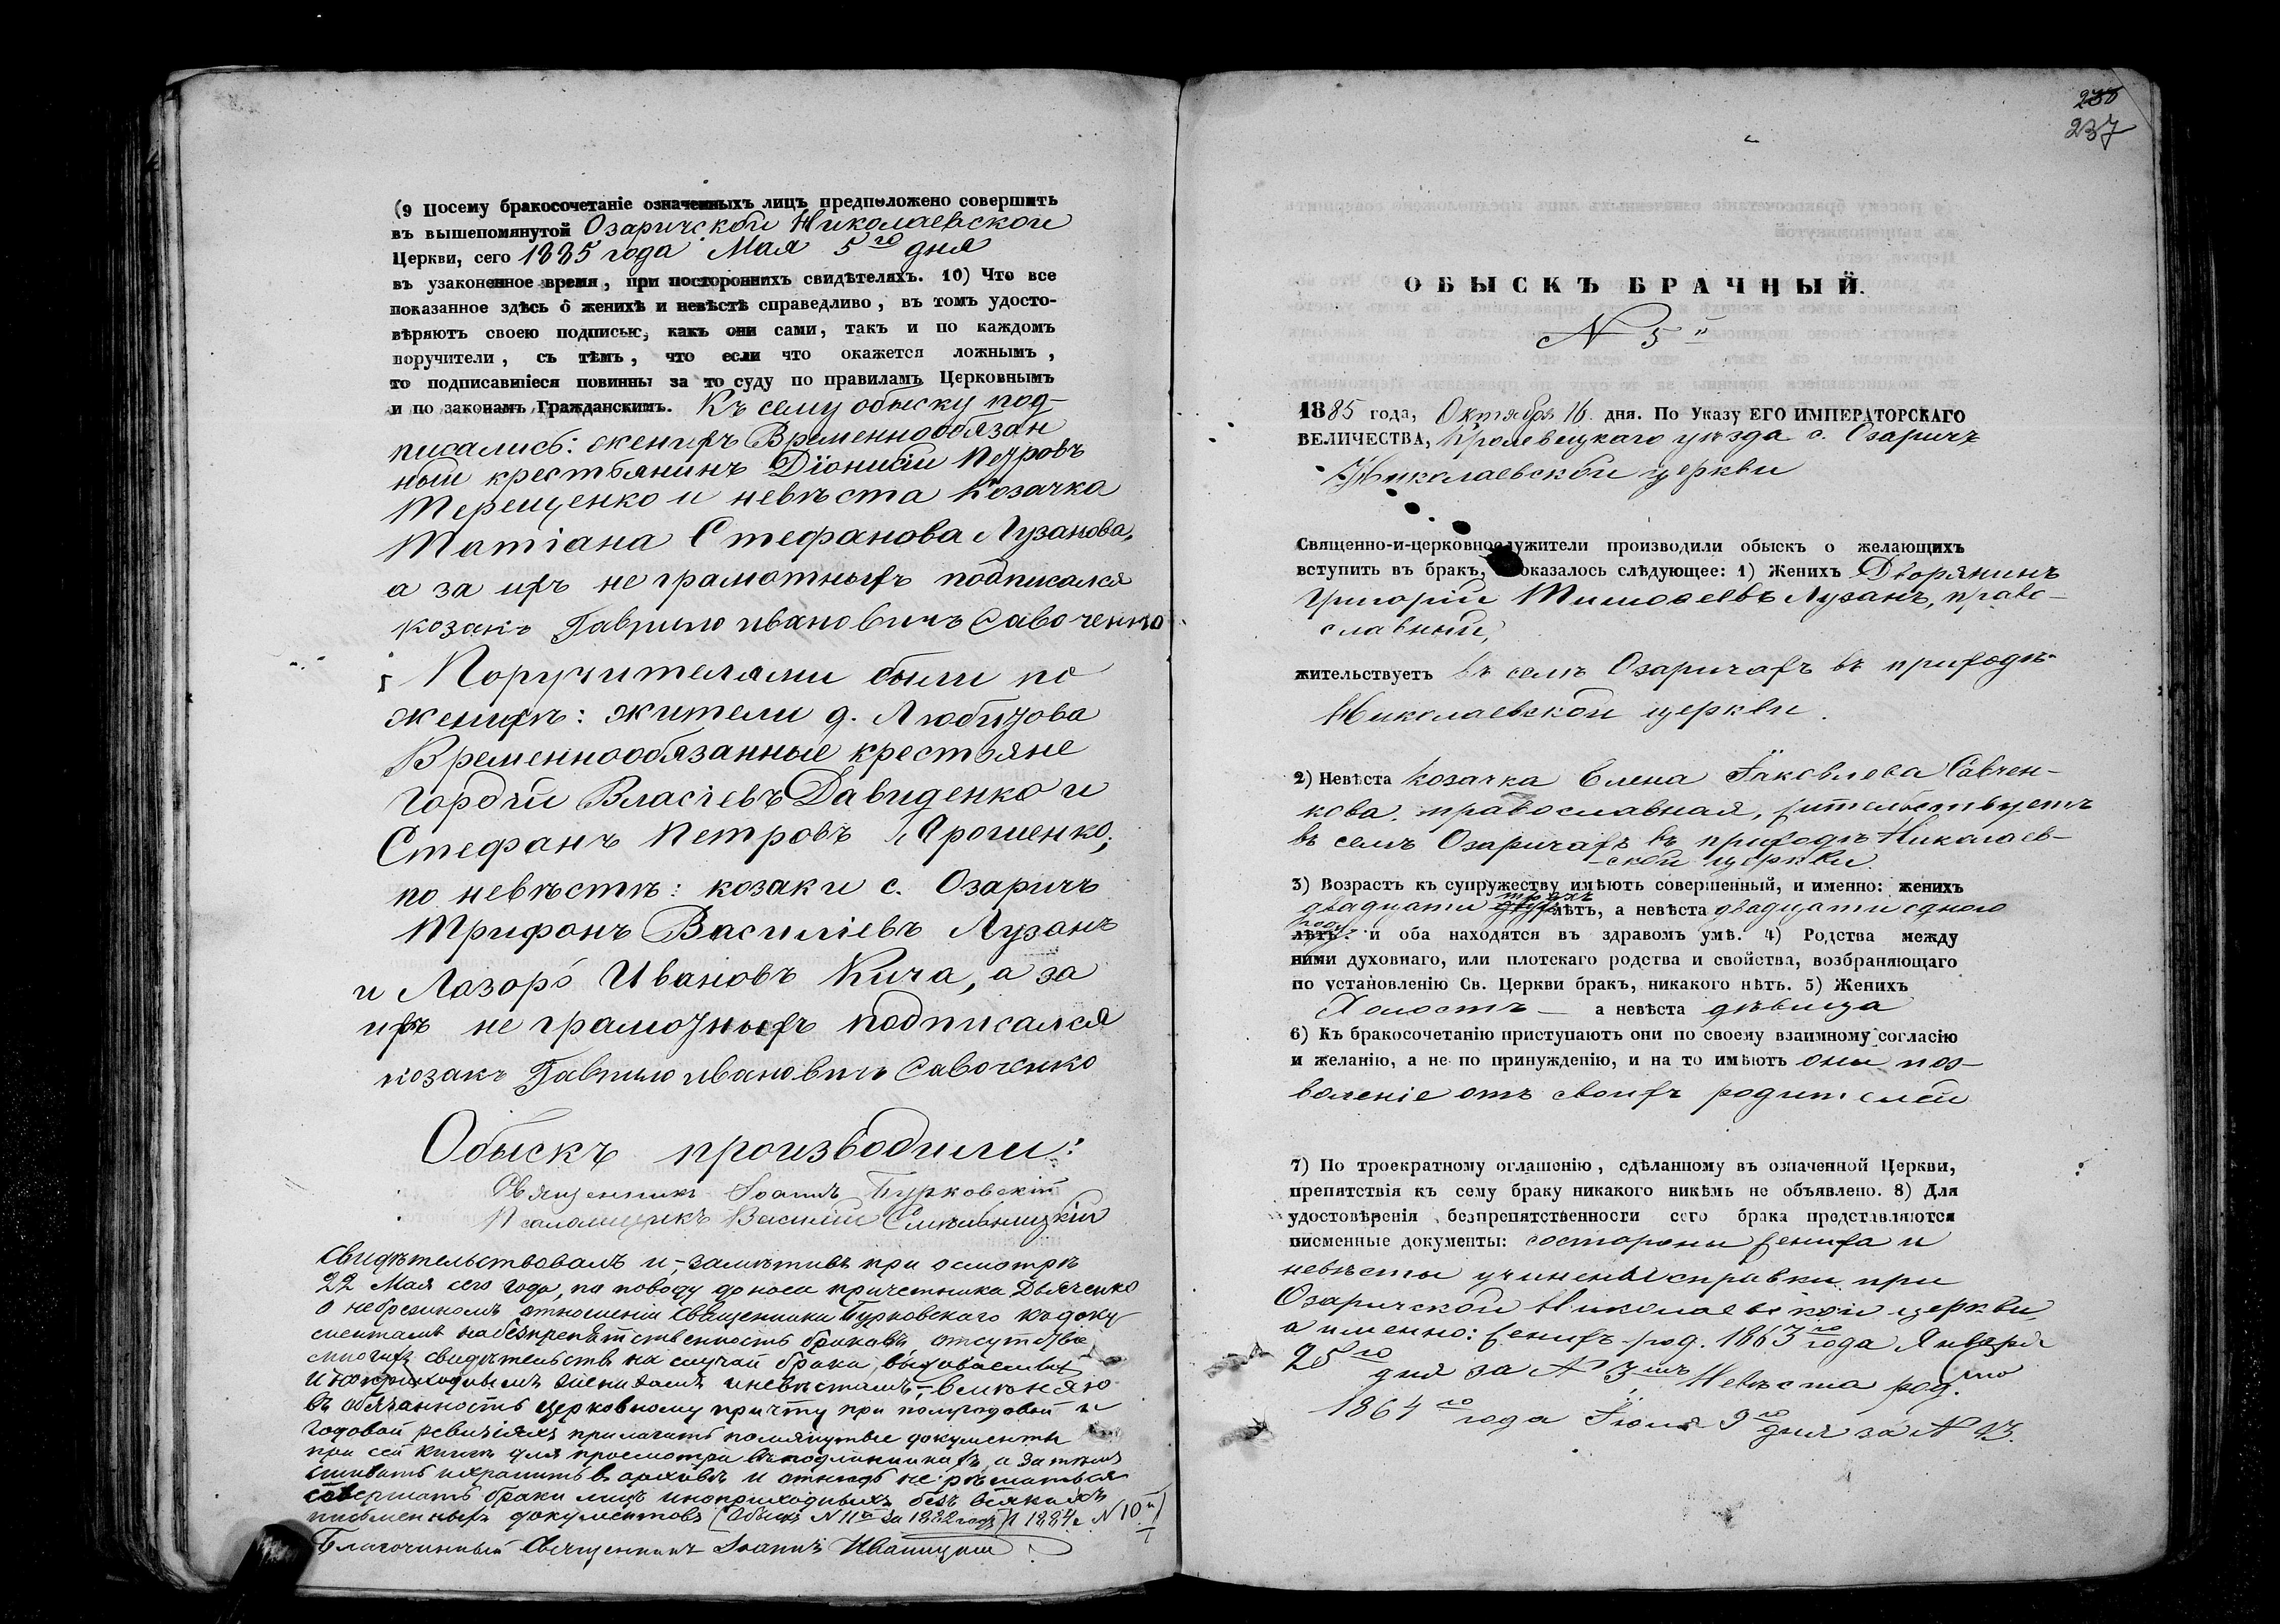 (9 Посему бракосочетаніе означенныхъ лицъ предположено совершить
въ вышепомянутой Озаричской Николаевской
Церкви, сего 1885 года Мая 5го дня
въ узаконенное время, при постороннихъ свидѣтеляхъ. 10) Что все
показанное здѣсь о женихѣ и невѣстѣ справедливо, въ томъ удосто-
вѣряютъ своею подписью, какъ они сами, такъ и по каждомъ
поручители, съ тѣмъ, что если что окажется ложнымъ,
то подписавшіеся повинны за то суду по правиламъ Церковнымъ
и по законамъ Гражданскимъ. Къ сему обыску под-
писались: женихъ Временнообязан
ный крестьянинъ Діонисій Петровъ
Терещенко и невѣста козачка
Татіана Стефанова Лузанова,
а за ихъ не грамотныхъ подписался
козакъ Гаврило ивановичъ Савоченко
Поручителями были по
женихѣ: жители д. Любитова
Временнообязанные крестьяне
Гордій Власіевъ Давиденко и
Стефанъ Петровъ Ярошенко;
по невѣстѣ: козаки с. Озаричъ
Трифонъ Василіевъ Лузанъ
и Лазорь Ивановъ Кича, а за
ихъ не грамотныхъ подписался
козакъ Гаврило ивановичъ Савоченко
Обыскъ производили:
Священникъ Іоаннъ Бурковскій
Псаломщикъ Василій Смѣльницкій
Свидѣтельствовалъ и, замѣтивъ при осмотрѣ
22 Мая сего года, по поводу доноса причетника Дьяченко
о небрежномъ отношеніи Священника Бурковскаго къ доку
ментамъ на безпрепятственность браковъ отсутствіе
многихъ свидѣтельствъ на случай брака, выдаваемыхъ
инокоприходнымъ женихамъ и невѣстамъ, – вмѣняю
въ обязанность церковному причту при полугодовой и
годовой ревизіяхъ прилагать помянутые документы
при сей книгѣ для просмотра въ подлинникахъ, а затѣмъ
сшивать и хранить въ архивѣ и отнюдь не рѣшаться
совершать браки лицъ иноприходныхъ безъ всякихъ
письменныхъ документовъ (Обыскъ N 11й за 1882 годъ и 1884 г. N 10й)
Благочинный Священникъ Іоаннъ Иваницкій
237
ОБЫСКЪ БРАЧНЫЙ.
N 5й
1885 года, Октября 16. дня. По Указу ЕГО ИМПЕРАТОРСКАГО
ВЕЛИЧЕСТВА, Кролевецкаго уѣзда с. Озаричъ
Николаевской церкви
Священно-и-церковнослужители производили обыскъ о желающихъ
вступить въ бракъ, оказалось слѣдующее: 1) Женихъ Дворянинъ
Григорій Тимоѳеевъ Лузанъ, право-
славный,
жительствуетъ въ селѣ Озаричахъ въ приходѣ
Николаевской церкви.
2) Невѣста козачка Елена Іаковлева Савчен-
кова, православная, жительствуетъ
въ селѣ Озаричахъ въ приходѣ Николаев-
-ской церкви.
3) Возрастъ къ супружеству имѣютъ совершенный, и именно: женихъ
двадцати трехъ лѣтъ, а невѣста двадцати одного
году. и оба находятся въ здравомъ умѣ. 4) Родства между
ними духовнаго, или плотскаго родства и свойства, возбраняющаго
по установленію Св. Церкви бракъ, никакого нѣтъ. 5) Женихъ
Холостъ — а невѣста дѣвица
6) Къ бракосочетанію приступаютъ они по своему взаимному согласію
и желанію, а не по принужденію, и на то имѣютъ они поз-
воленіе отъ своихъ родителей
7) По троекратному оглашенію, сдѣланному въ означенной Церкви,
препятствія къ сему браку никакого никѣмъ не объявлено. 8) Для
удостовѣренія безпрепятственности сего брака представляются
писменные документы: состороны жениха и
невѣсты учинены справки при
Озаричской Николаевской церкви,
а именно: женихъ род. 1863го года Января
25го дня за N 3мъ Невѣста род.
1864го года Іюля 9го дня за N 43.